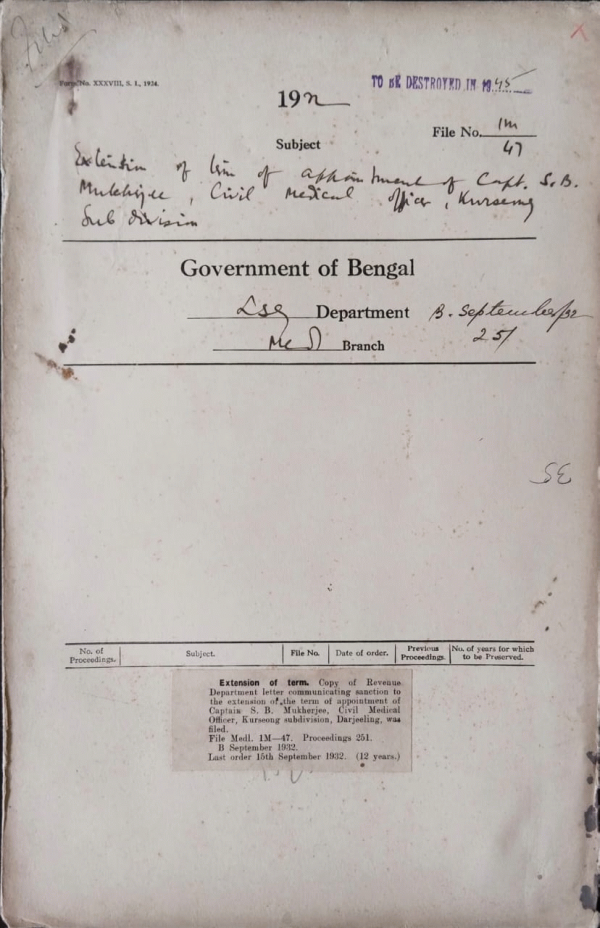 Filed
Form No. XXXVIII, S. I., 1924.
TO BE DESTROYED IN 1945
1932
File No. 1M
47
Subject
Extension of term of appointment of Capt. S. B.
Mukherjee, Civil Medical Officer, Kurseong
Sub division
Government of Bengal
LSG Department B. September/32
Med Branch 251
No. of Proceedings. Subject. File No. Date of order. Previous Proceedings. No. of years for which to be Preserved.
Extension of term. Copy of Revenue
Department letter communicating sanction to
the extension of the term of appointment of
Captain S. B. Mukherjee, Civil Medical
Officer, Kurseong subdivision, Darjeeling, was
filed.
File Medl. 1M—47. Proceedings 251.
B September 1932.
Last order 15th September 1932. (12 years.)